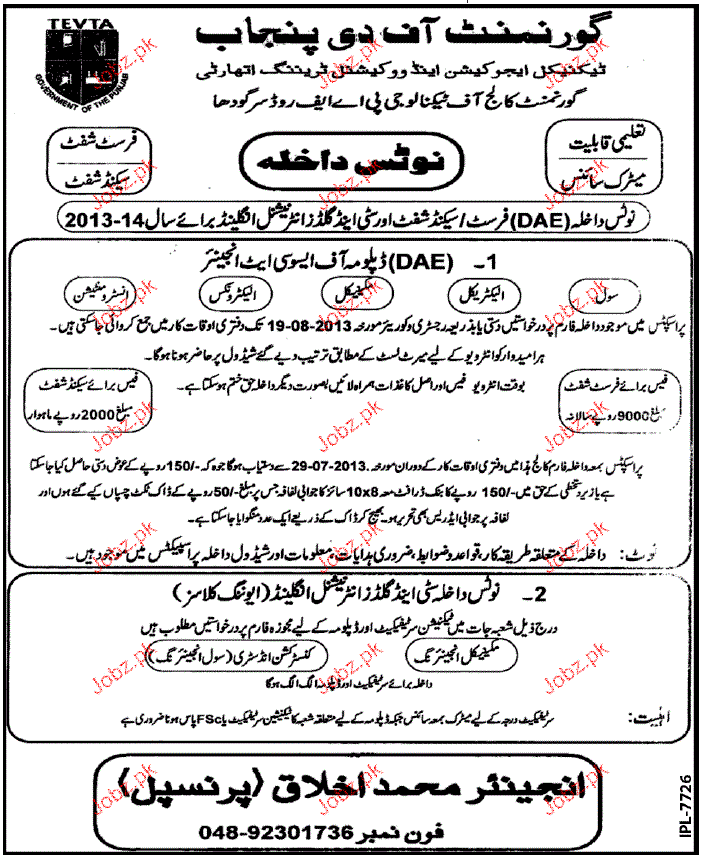 TEVTA
GOVERNMENT OF THE PUNJAB
گورنمنٹ آف دی پنجاب
ٹیکنیکل ایجوکیشن اینڈ ووکیشنل ٹریننگ اتھارٹی
گورنمنٹ کالج آف ٹیکنالوجی پی اے ایف روڈ سرگودھا
تعلیمی قابلیت
میٹرک سائنس
نوٹس داخلہ
فرسٹ شفٹ
سیکنڈ شفٹ
نوٹس داخلہ (DAE) فرسٹ / سیکنڈ شفٹ اور سٹی اینڈ گلڈز انٹرنیشنل انگلینڈ برائے سال 2013-14
1۔ (DAE) ڈپلومہ آف ایسوسی ایٹ انجینئر
سول
الیکٹریکل
مکینیکل
الیکٹرونکس
انسٹرومنٹیشن
پراسپکٹس میں موجود داخلہ فارم پر درخواستیں دستی یا بذریعہ رجسٹری و کوریئر مورخہ 19-08-2013 تک دفتری اوقات کار میں جمع کروائی جا سکتی ہیں۔
ہر امیدوار کو انٹرویو کے لیے میرٹ لسٹ کے مطابق ترتیب دیے گئے شیڈول پر حاضر ہونا ہوگا۔
بوقت انٹرویو فیس اور اصل کاغذات ہمراہ لائیں بصورت دیگر داخلہ حق ختم ہو سکتا ہے۔
فیس برائے فرسٹ شفٹ
مبلغ 9000 روپے سالانہ
فیس برائے سیکنڈ شفٹ
مبلغ 2000 روپے ماہوار
پراسپکٹس بمعہ داخلہ فارم کالج ہذا میں دفتری اوقات کار کے دوران مورخہ 29-07-2013 سے دستیاب ہوگا جو کہ -/150 روپے کے عوض دستی حاصل کیا جا سکتا
ہے یا زیر دستخطی کے حق میں -/150 روپے کا بنک ڈرافٹ معہ 10x8 سائز کا جوابی لفافہ جس پر مبلغ -/50 روپے کے ڈاک ٹکٹ چسپاں کیے گئے ہوں اور
لفافہ پر جوابی ایڈریس بھی تحریر ہو۔ بھیج کر ڈاک کے ذریعے ایک عدد منگوایا جا سکتا ہے۔
نوٹ: داخلہ کے متعلقہ طریقہ کار، قواعد و ضوابط، ضروری ہدایات، معلومات اور شیڈول داخلہ پراسپیکٹس میں موجود ہیں۔
2۔ نوٹس داخلہ سٹی اینڈ گلڈز انٹرنیشنل انگلینڈ (ایوننگ کلاسز)
درج ذیل شعبہ جات میں ٹیکنیشن سرٹیفکیٹ اور ڈپلومہ کے لیے مجوزہ فارم پر درخواستیں مطلوب ہیں
مکینیکل انجینئرنگ
کنسٹرکشن انڈسٹری (سول انجینئرنگ)
داخلہ برائے سرٹیفکیٹ اور ڈپلومہ الگ الگ ہوگا
اہلیت: سرٹیفکیٹ درجہ کے لیے میٹرک بمعہ سائنس جبکہ ڈپلومہ کے لیے متعلقہ شعبہ کا ٹیکنیشین سرٹیفکیٹ یا FSc پاس ہونا ضروری ہے
انجینئر محمد اخلاق (پرنسپل)
فون نمبر 048-92301736
IPL-7726
Jobz.pk